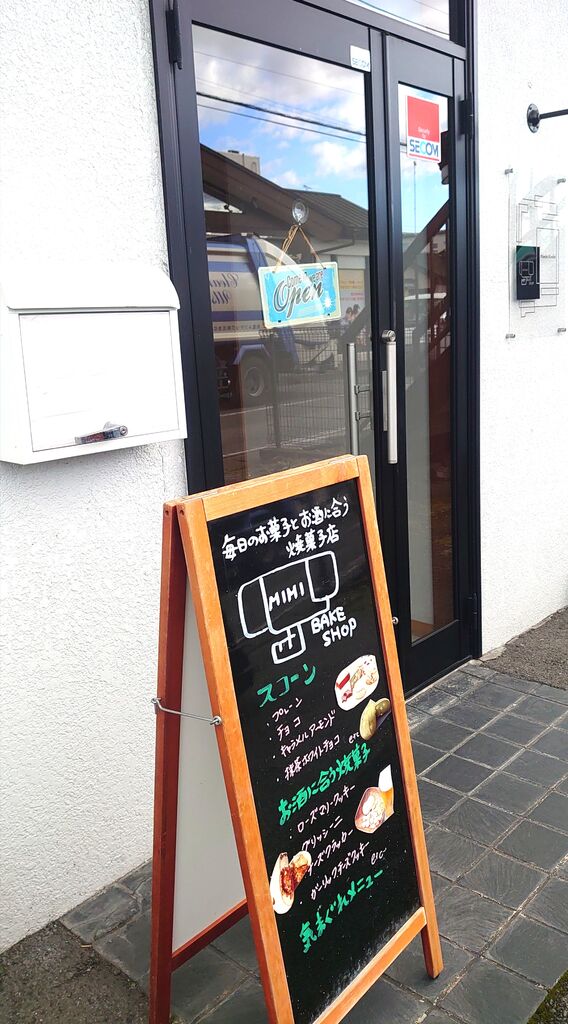 SECOM
Security by
SECOM
Come in we are
Open
毎日のお菓子とお酒に合う
焼菓子店
MIMI
BAKE
SHOP
スコーン
・プレーン
・チョコ
・キャラメルアーモンド
・抹茶ホワイトチョコ etc
お酒に合う焼菓子
・ローズマリークッキー
・グリッシーニ
・チーズクラッカー
・ガーリックチーズクッキー
etc
気まぐれメニュー